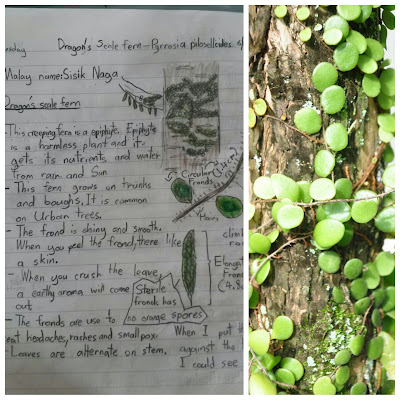 esday
Dragon's Scale fern - Pyrrosia piloselloides
Malay name: Sisik Naga
Dragon's scale fern
- This creeping fern is a epiphyte. Epiphyte
is a harmless plant and it
gets its nutrients and water
from rain and Sun.
- This fern grows on trunks
and boughs. It is common
on Urban trees.
- The frond is shiny and smooth.
When you peel the frond, there like
a skin.
- When you crush the leave,
a earthy aroma will come
out
- The fronds are use to
eat headaches, rashes and smallpox.
- Leaves are alternate on stem.
Circular
Fronds
(1.4cm)
Hairy
Sterile
fronds has
no orange spores
climb
Elonga
Frond
(4.8
When I put th
against the l
I could see